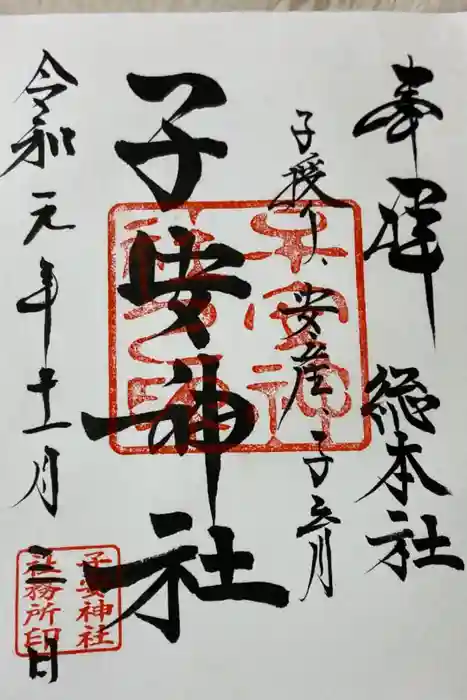 奉拝
総本社
子授け、安産、子育
子安神社
令和元年十一月三日
子安神社之印
子安神社
社務所印